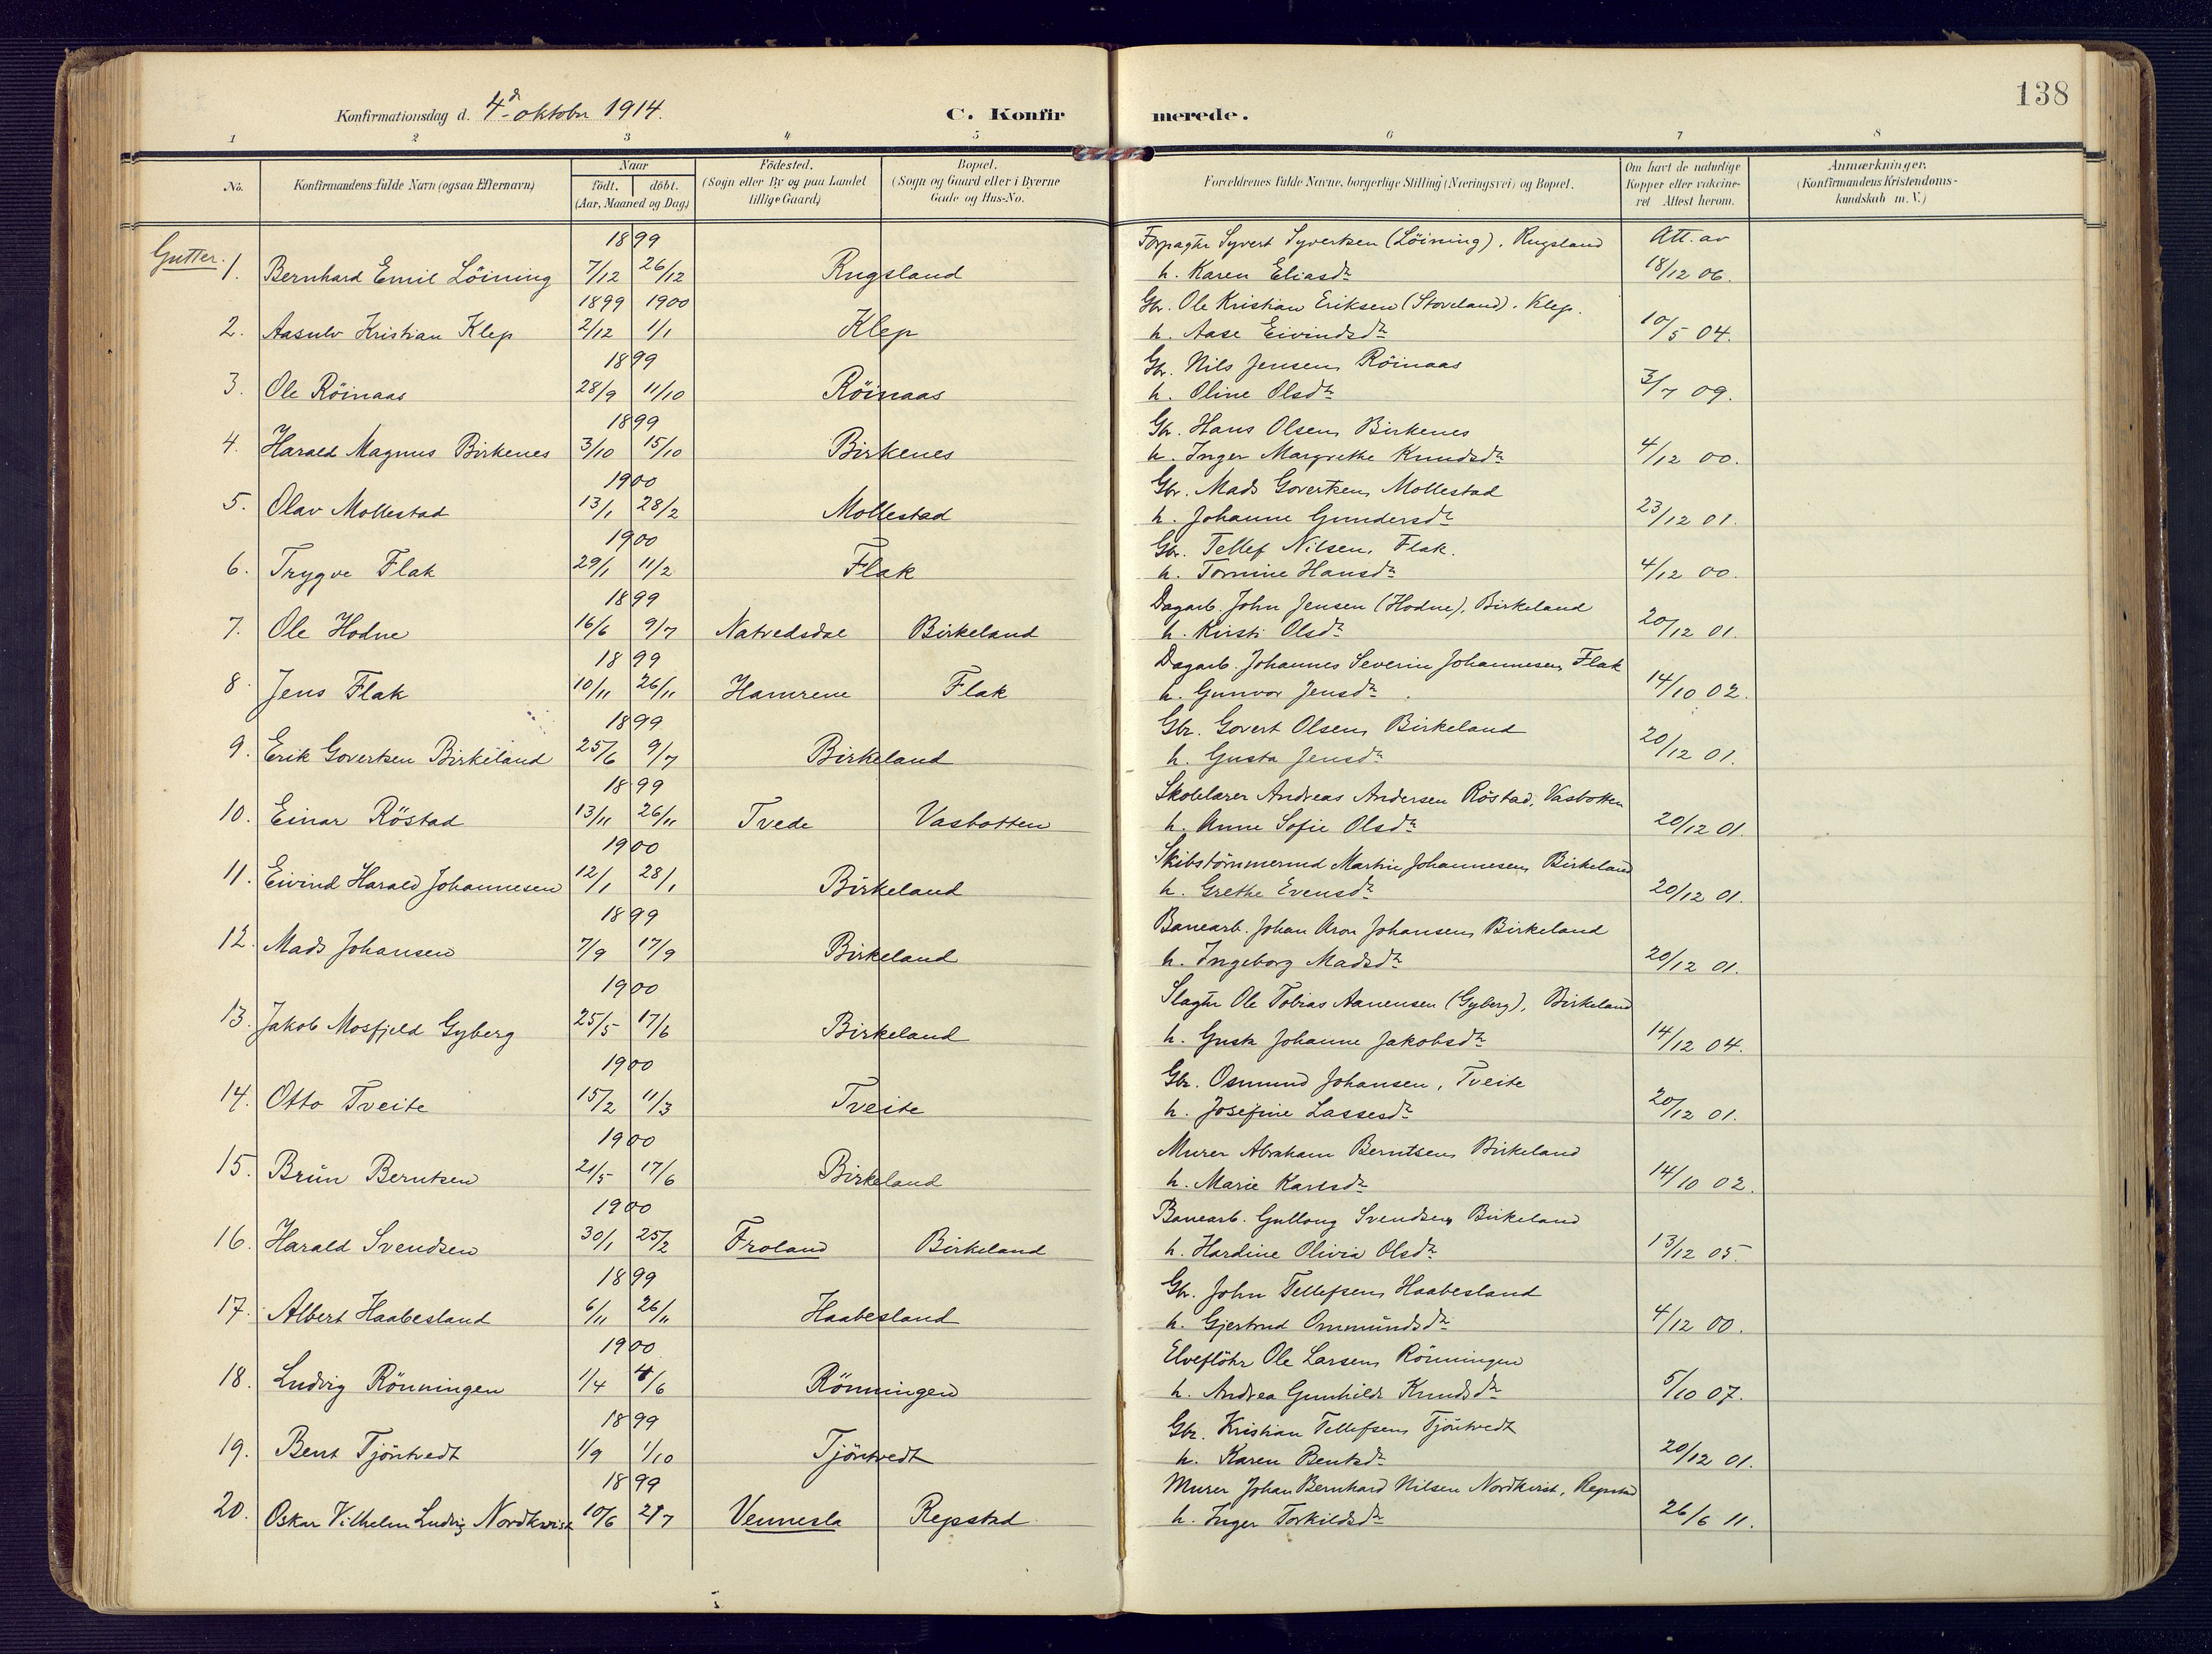 138
Konfirmationsdag d. 4de oktober 1914. C. Konfirmerede.
1 2 3 4 5 6 7 8
No. Konfirmandens fulde Navn (ogsaa Efternavn) Naar födt. döbt. (Aar, Maaned og Dag) Födested. (Sogn eller By og paa Landet tillige Gaard) Bopæl. (Sogn og Gaard eller i Byerne Gade og Hus-No. Forældrenes fulde Navne, borgerlige Stilling (Næringsvei) og Bopæl. Om havt de naturlige Kopper eller vakcineret Attest herom. Anmærkninger. (Konfirmandens Kristendomskundskab m. V.)
Gutter.
1899 Forpagter Syvert Syvertsen (Löining), Rugsland Att. av
1. Bernhard Emil Löining 7/12 26/12 Rugsland h. Karen Eliasdr 18/12 06.
1899 1900 Gbr. Ole Kristian Eriksen (Stoveland). Klep.
2. Aasulv Kristian Klep 2/12 1/1 Klep h. Aase Eivindsdr 10/5 04.
1899 Gbr. Nils Jensen, Röinaas
3. Ole Röinaas 28/9 11/10 Röinaas h. Oline Olsdr 3/7 09.
1899 Gbr. Hans Olsen, Birkenes
4. Harald Magnus Birkenes 3/10 15/10 Birkenes h. Inger Margrethe Knudsdr 4/12 00.
1900 Gbr. Mads Govertsen, Mollestad
5. Olav Mollestad 13/1 28/2 Mollestad h. Johanne Gundersdr 23/12 01.
1900 Gbr. Tellef Nilsen, Flak.
6. Trygve Flak 29/1 11/2 Flak h. Tomine Hansdr 4/12 00.
1899 Dagarb. John Jensen (Hodne), Birkeland
7. Ole Hodne 16/6 9/7 Natvedsdal Birkeland h. Kirsti Olsdr 20/12 01.
1899 Dagarb. Johannes Severin Johannesen, Flak
8. Jens Flak 10/11 26/11 Hamrene Flak h. Gunvor Jensdr 14/10 02.
1899 Gbr. Govert Olsen, Birkeland
9. Erik Govertsen Birkeland 25/6 9/7 Birkeland h. Gusta Jensdr 20/12 01.
1899 Skolelærer Andreas Andersen Röstad, Vasbotten
10. Einar Röstad 13/11 26/11 Tvede Vasbotten h. Anne Sofie Olsdr 20/12 01.
1900 Skibstömmermd Martin Johannesen, Birkeland
11. Eivind Harald Johannesen 12/1 28/1 Birkeland h. Grethe Evensdr 20/12 01.
1899 Banearb. Johan Aron Johansen, Birkeland
12. Mads Johansen 7/9 17/9 Birkeland h. Ingeborg Madsdr 20/12 01.
1900 Slagter Ole Tobias Aanensen (Gyberg), Birkeland
13. Jakob Mosfjeld Gyberg 25/5 17/6 Birkeland h. Gusta Johanne Jakobsdr 14/12 04.
1900 Gbr. Osmund Johansen, Tveite
14. Otto Tveite 15/2 11/3 Tveite h. Josefine Lassesdr 20/12 01.
1900 Murer Abraham Berntsen, Birkeland
15. Brun Berntsen 21/5 17/6 Birkeland h. Marie Karlsdr 14/10 02.
1900 Banearb. Gullaug Svendsen, Birkeland
16. Harald Svendsen 30/1 25/2 Froland Birkeland h. Hardine Olivia Olsdr 13/12 05.
1899 Gbr. John Tellefsen, Haabesland
17. Albert Haabesland 6/11 26/11 Haabesland h. Gjertrud Ommundsdr 4/12 00.
1900 Elveflöter Ole Larsen, Rönningen
18. Ludvig Rönningen 1/4 4/6 Rönningen h. Andrea Gunhilde Knudsdr 5/10 07.
1899 Gbr. Kristian Tellefsen, Tjöntvedt
19. Bent Tjöntvedt 1/9 1/10 Tjöntvedt h. Karen Bentsdr 20/12 01.
1899 Murer Johan Bernhard Nilsen Nordkvist, Repstad
20. Oskar Vilhelm Ludvig Nordkvist 10/6 2/7 Vennesla Repstad h. Inger Torkildsdr 26/6 11.